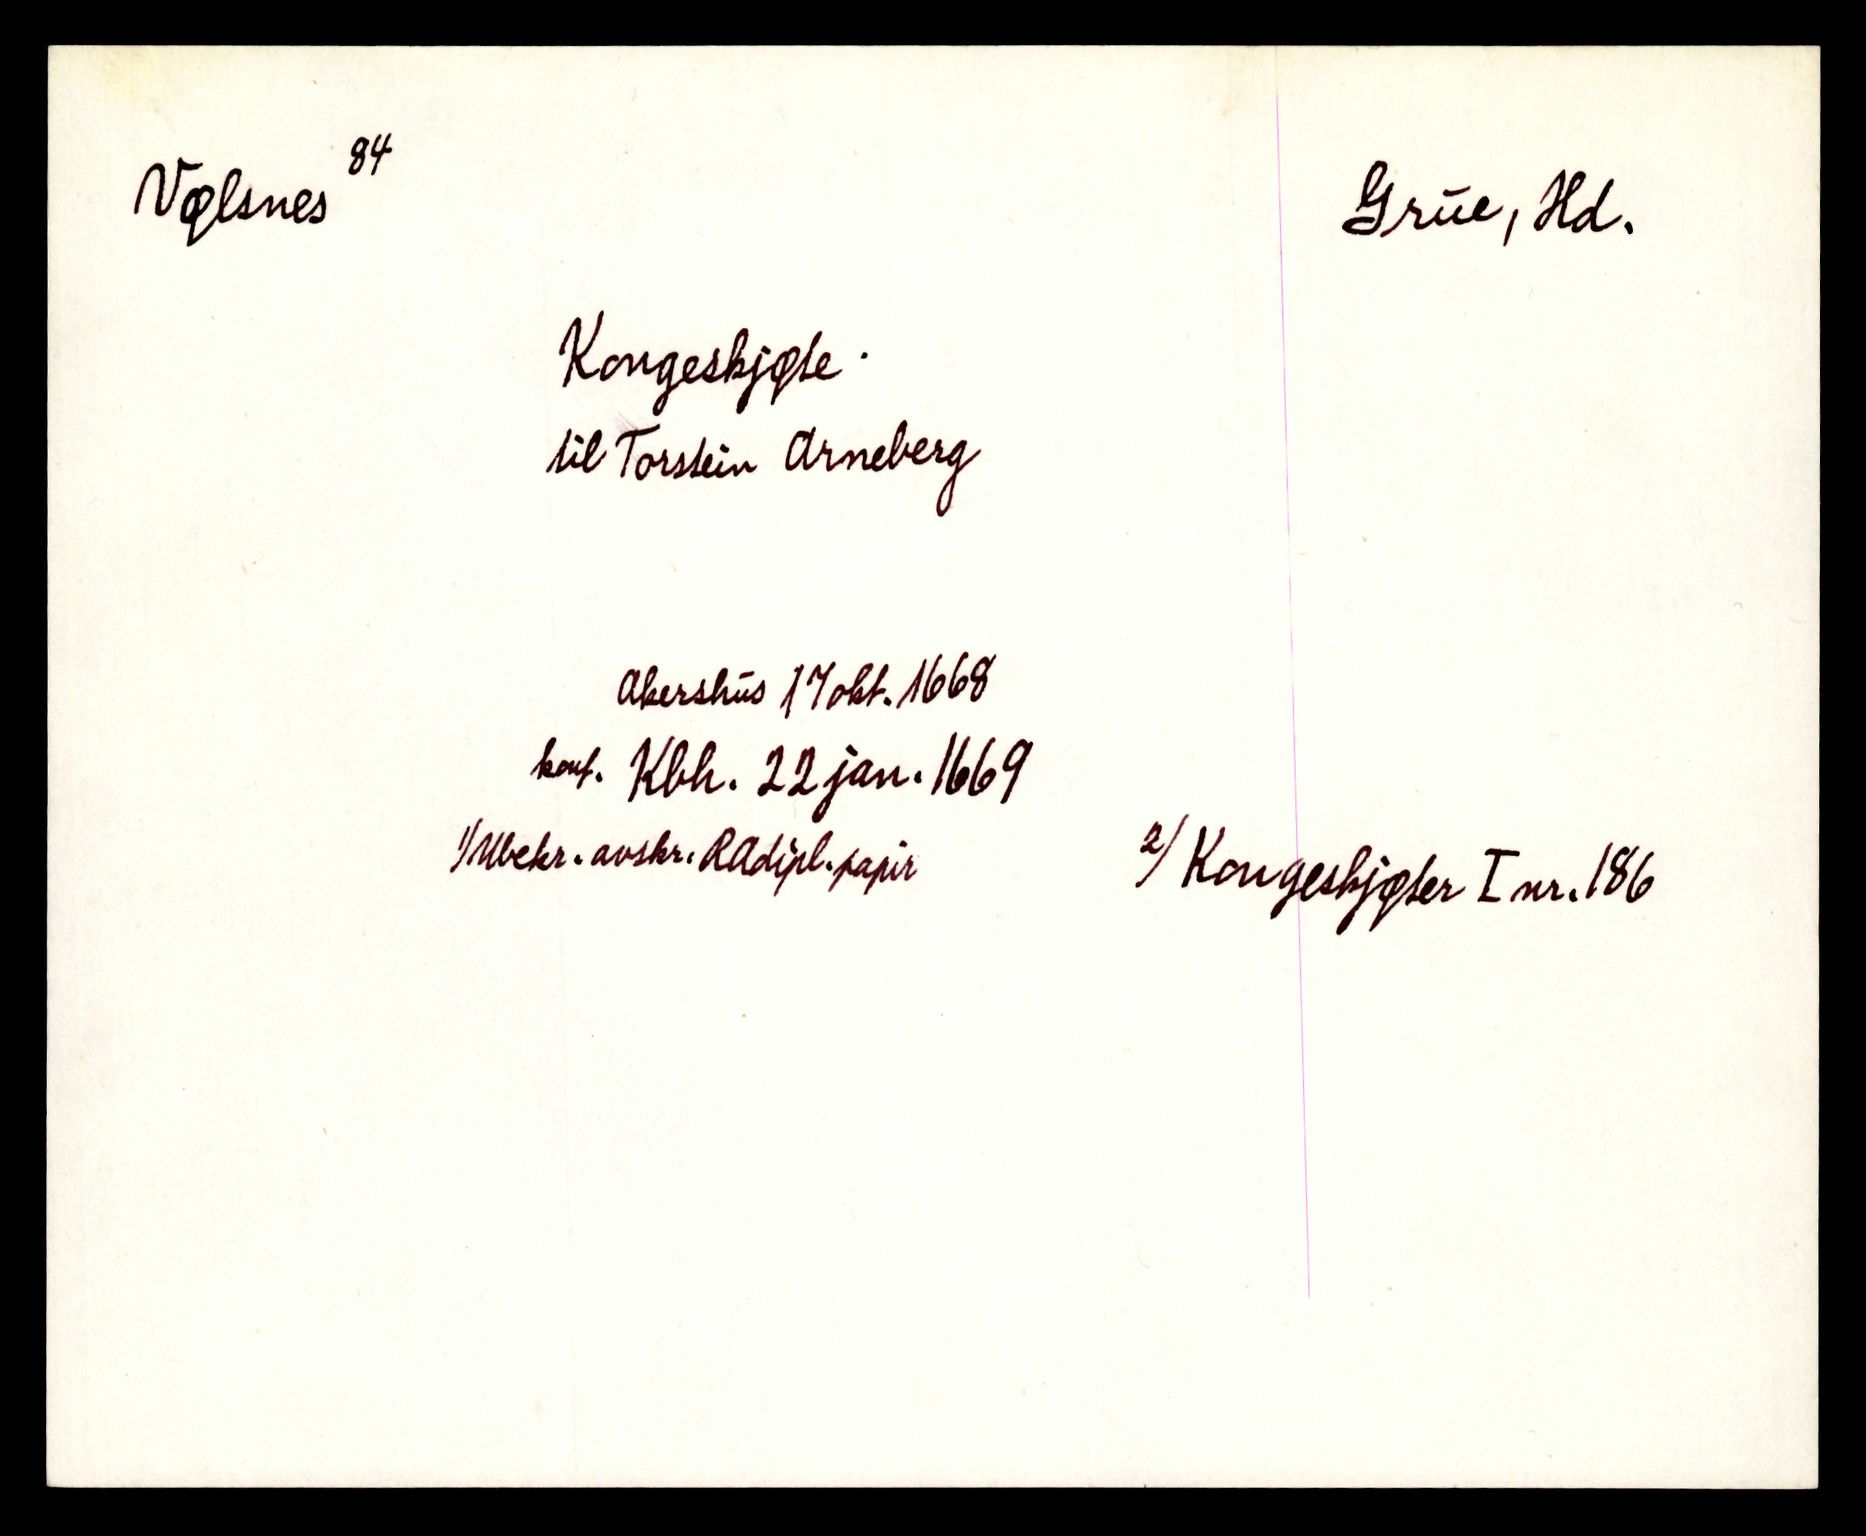 Vølsnes 84
Grue, Hd.
Kongeskjøte.
til Torstein Arneberg
Akershus 17 okt. 1668
konf. Kbh. 22 jan. 1669
1/ Ubekr. avskr. RAdipl. papir
2/ Kongeskjøter I nr. 186